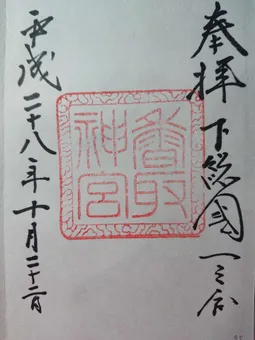 奉拝 下総國一之宮
香取
神宮
平成二十八年十月二十二日